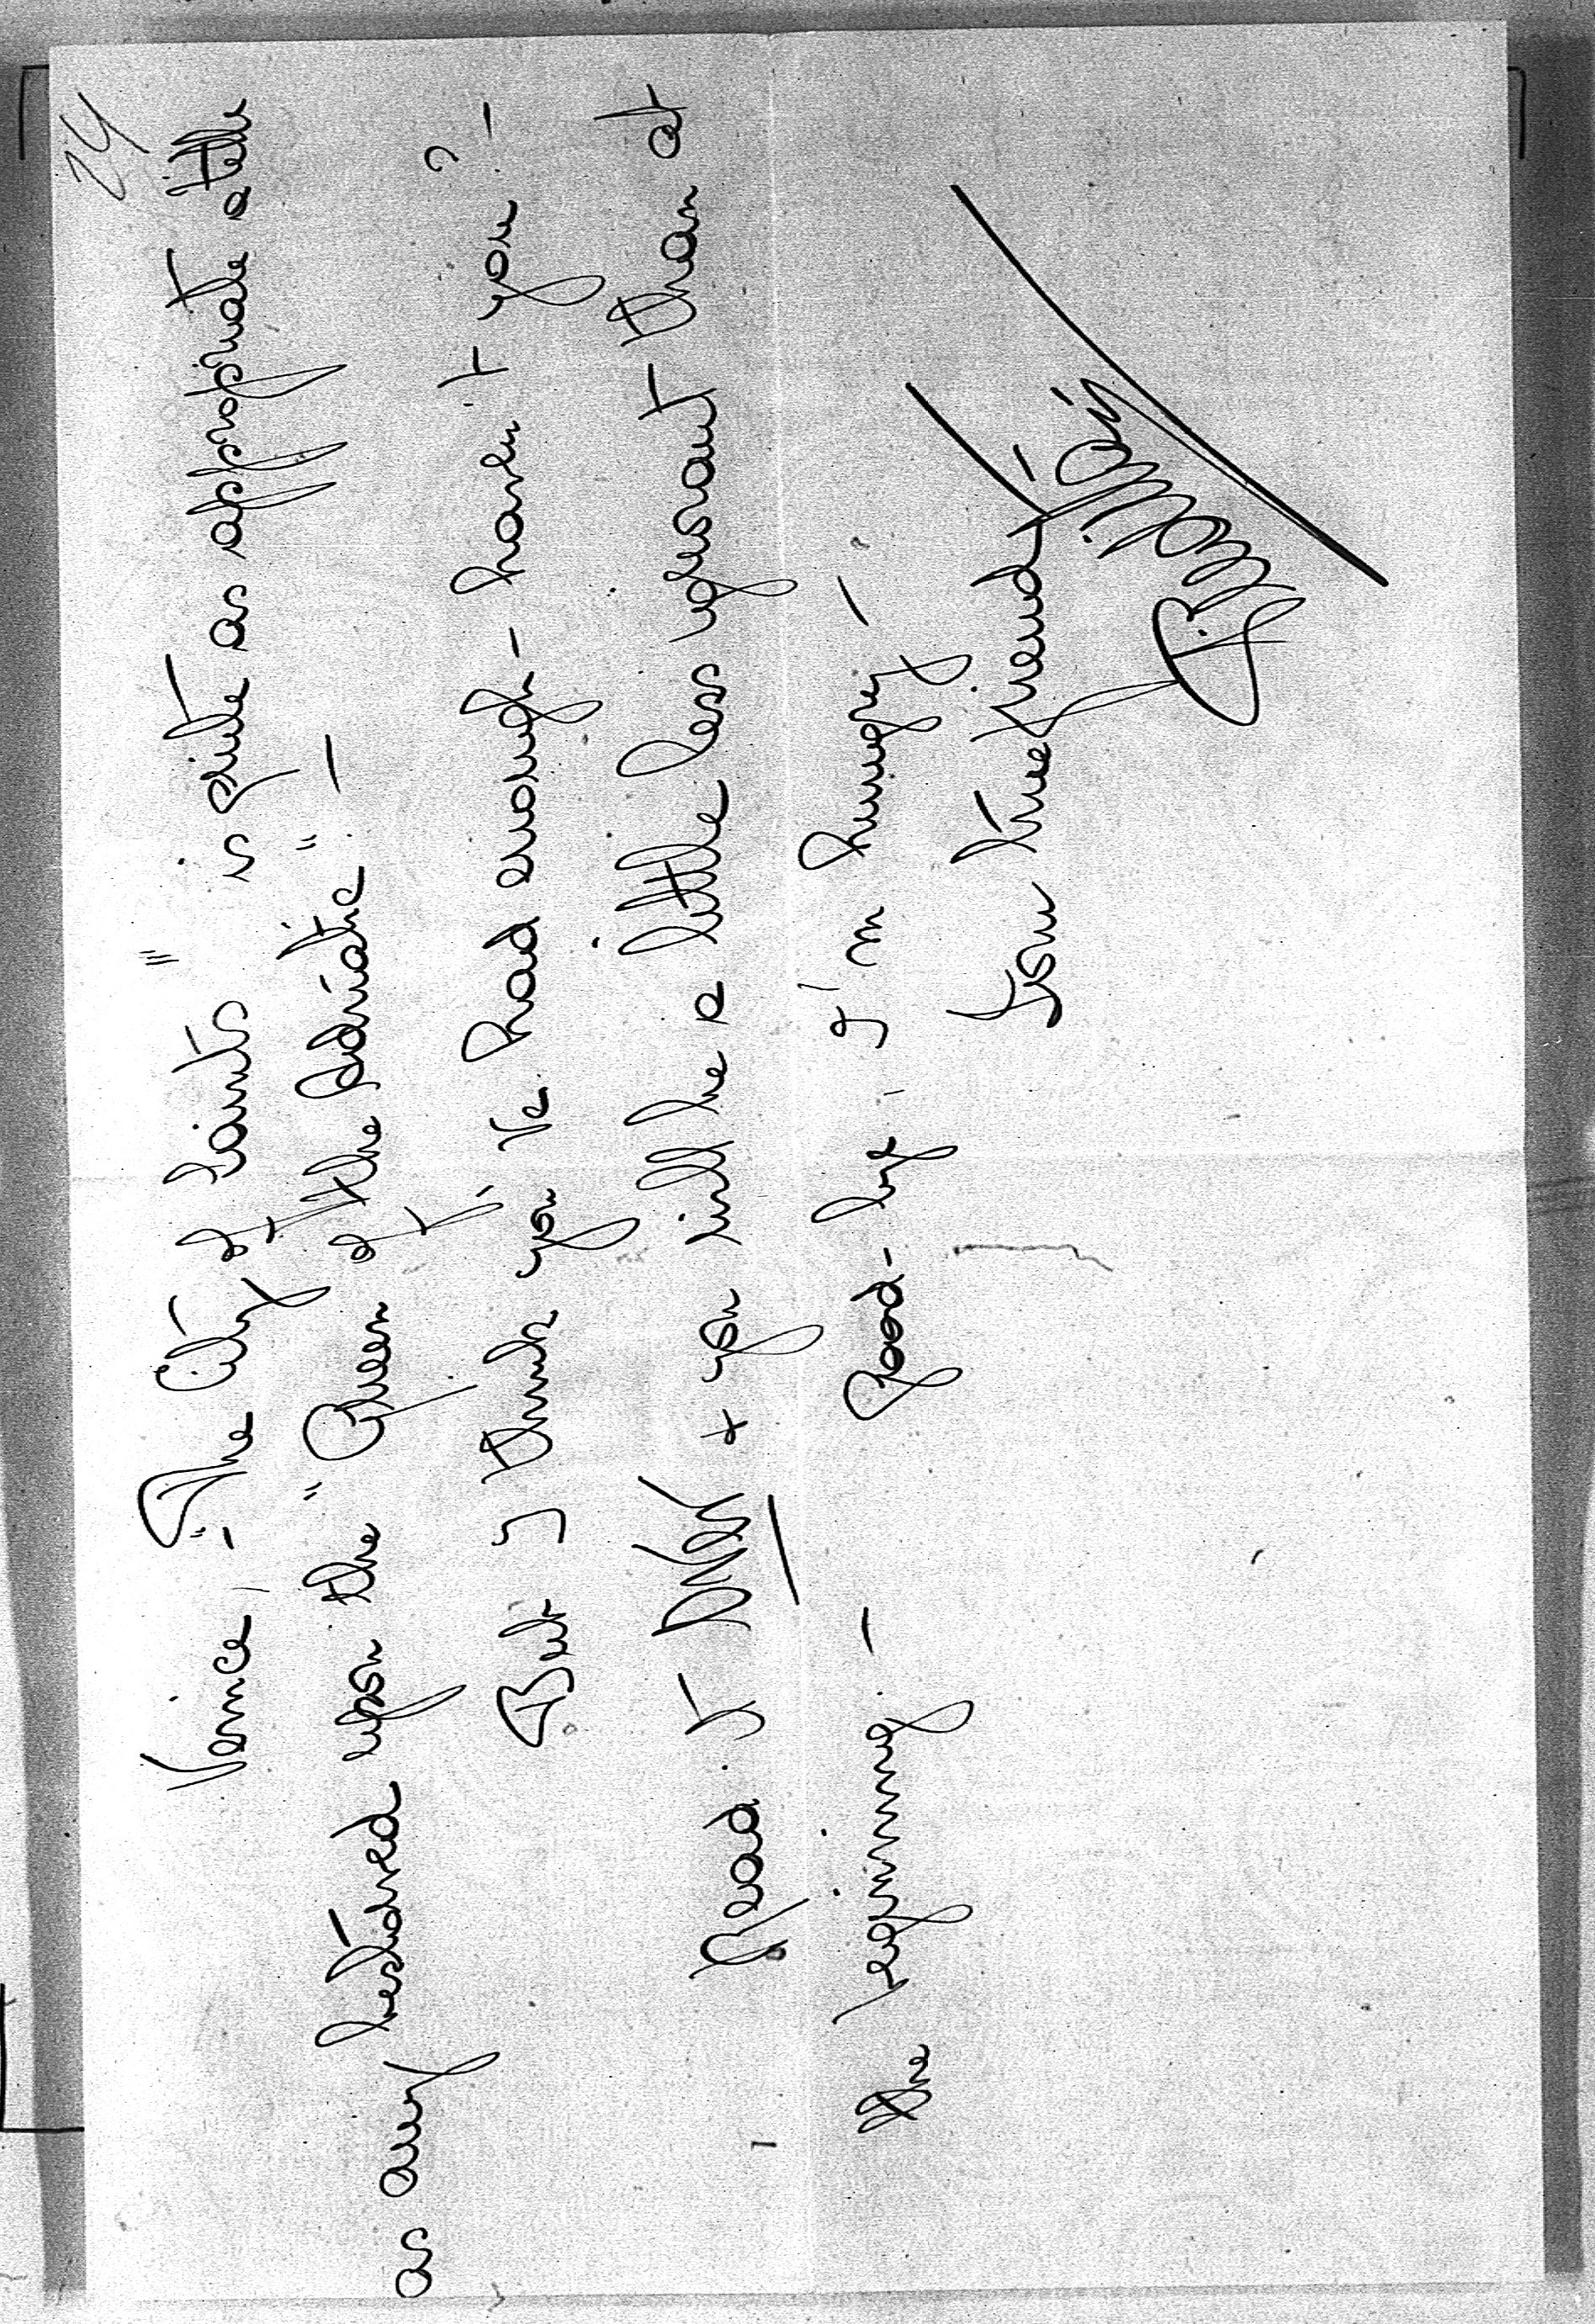 24
Venice, - "The City of Saints" is quite as appropriate a title
as any bestowed upon the "Queen of the Adriatic." -
But I think you've had enough - haven't you? -
Read it over & you will be a little less ignorant than at
the beginning. - Good-bye, I'm hungry -
Your true friend,